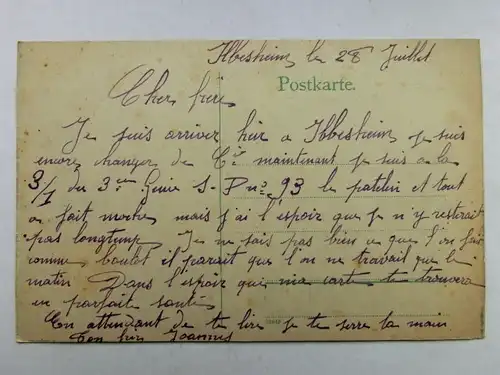 Ilbesheim le 28 Juillet
Postkarte.
Cher frère
Je suis arriver hier a Ilbesheim je suis
encore changer de Cie maintenant je suis a la
3/1 du 3em Génie S-P no 93 le patelin et tout
a fait moche mais j'ai l'espoir que je n'y resterait
pas longtemp Je ne sais pas bien ce que l'on fait
comme boulot il parait que l'on ne travail que le
matin Dans l'espoir que ma carte te trouvera
en parfaite santé
En attendant de te lire je te serre la main
Ton frère Joannis